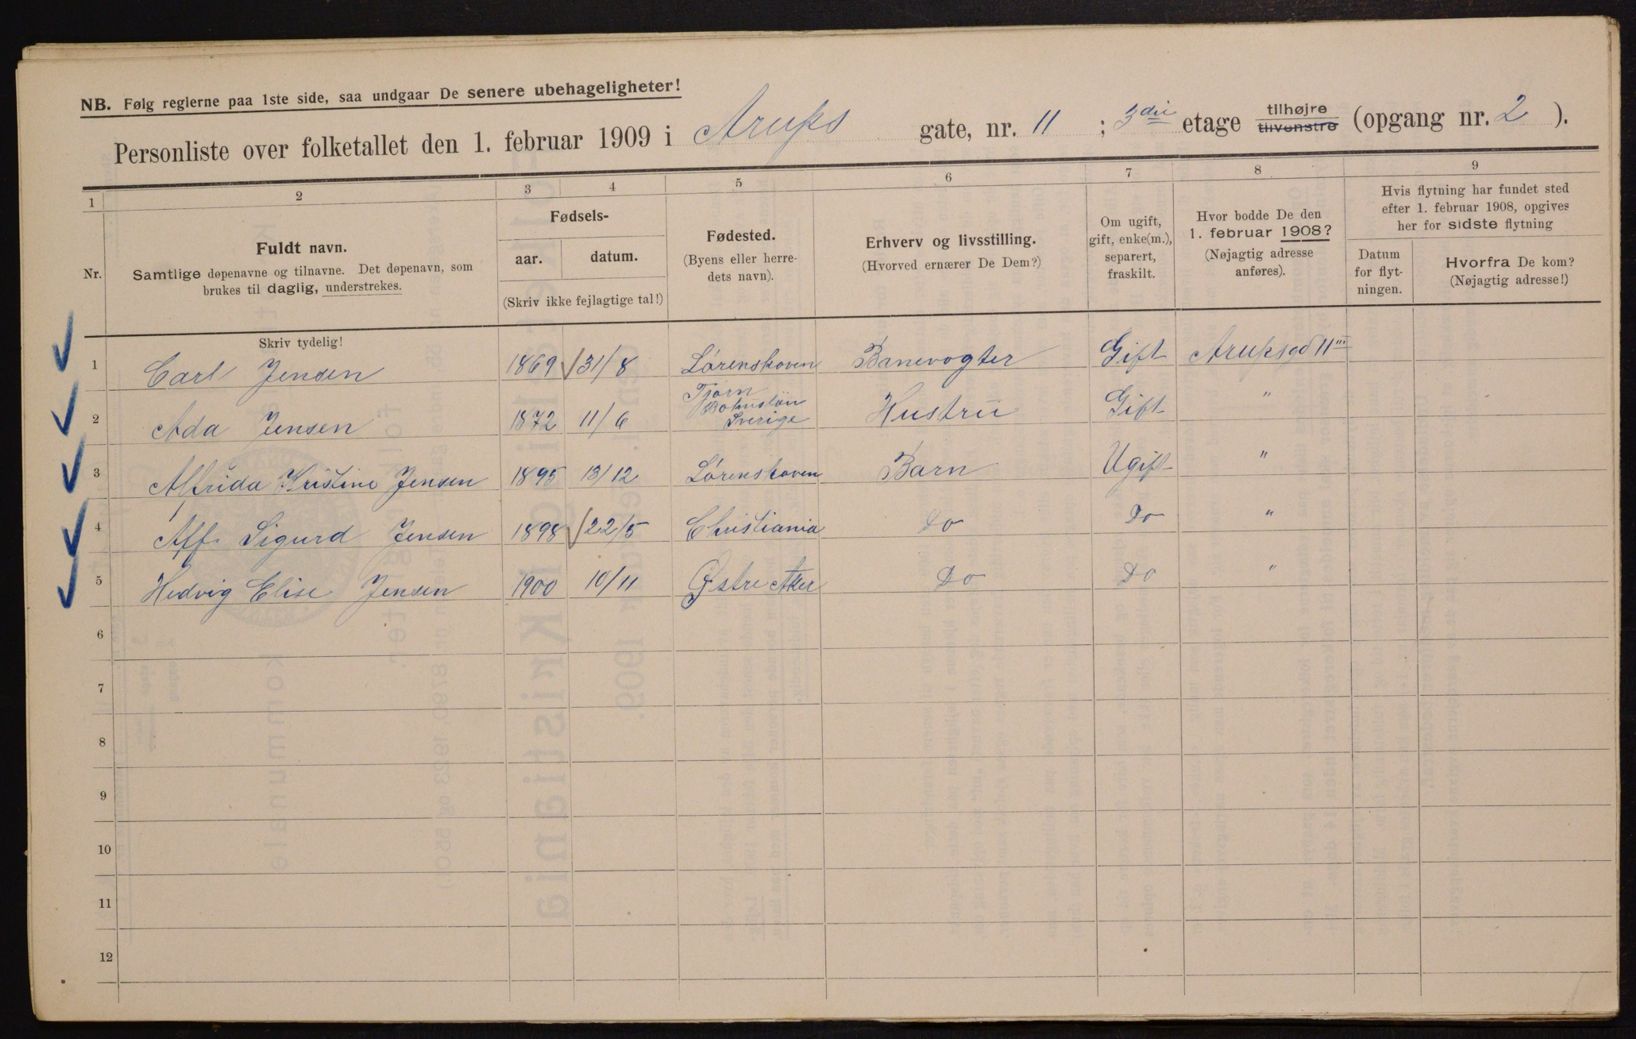 NB. Følg reglerne paa 1ste side, saa undgaar De senere ubehageligheter!
Personliste over folketallet den 1. februar 1909 i Arups gate, nr. 11 ; 3die etage tilhøjre tilvenstre (opgang nr. 2 ).
1 2 3 4 5 6 7 8 9
Nr.
Fuldt navn.
Samtlige døpenavne og tilnavne. Det døpenavn, som
brukes til daglig, understrekes.
Fødsels-
aar. datum.
(Skriv ikke fejlagtige tal!)
Fødested.
(Byens eller herre-
dets navn).
Erhverv og livsstilling.
(Hvorved ernærer De Dem?)
Om ugift,
gift, enke(m.),
separert,
fraskilt.
Hvor bodde De den
1. februar 1908?
(Nøjagtig adresse
anføres).
Hvis flytning har fundet sted
efter 1. februar 1908, opgives
her for sidste flytning
Datum
for flyt-
ningen.
Hvorfra De kom?
(Nøjagtig adresse!)
Skriv tydelig!
1 Carl Jensen 1869 31/8 Lørenskoven Banevogter Gift Arupsgd 11 III
2 Ada Jensen 1872 11/6 Tjørn Bohuslän Sverige Hustru Gift "
3 Alfrida Kristine Jensen 1895 13/12 Lørenskoven Barn Ugift "
4 Alf Sigurd Jensen 1898 22/5 Christiania Do Do "
5 Hedvig Elise Jensen 1900 10/11 Østre Aker Do Do "
6
7
8
9
10
11
12